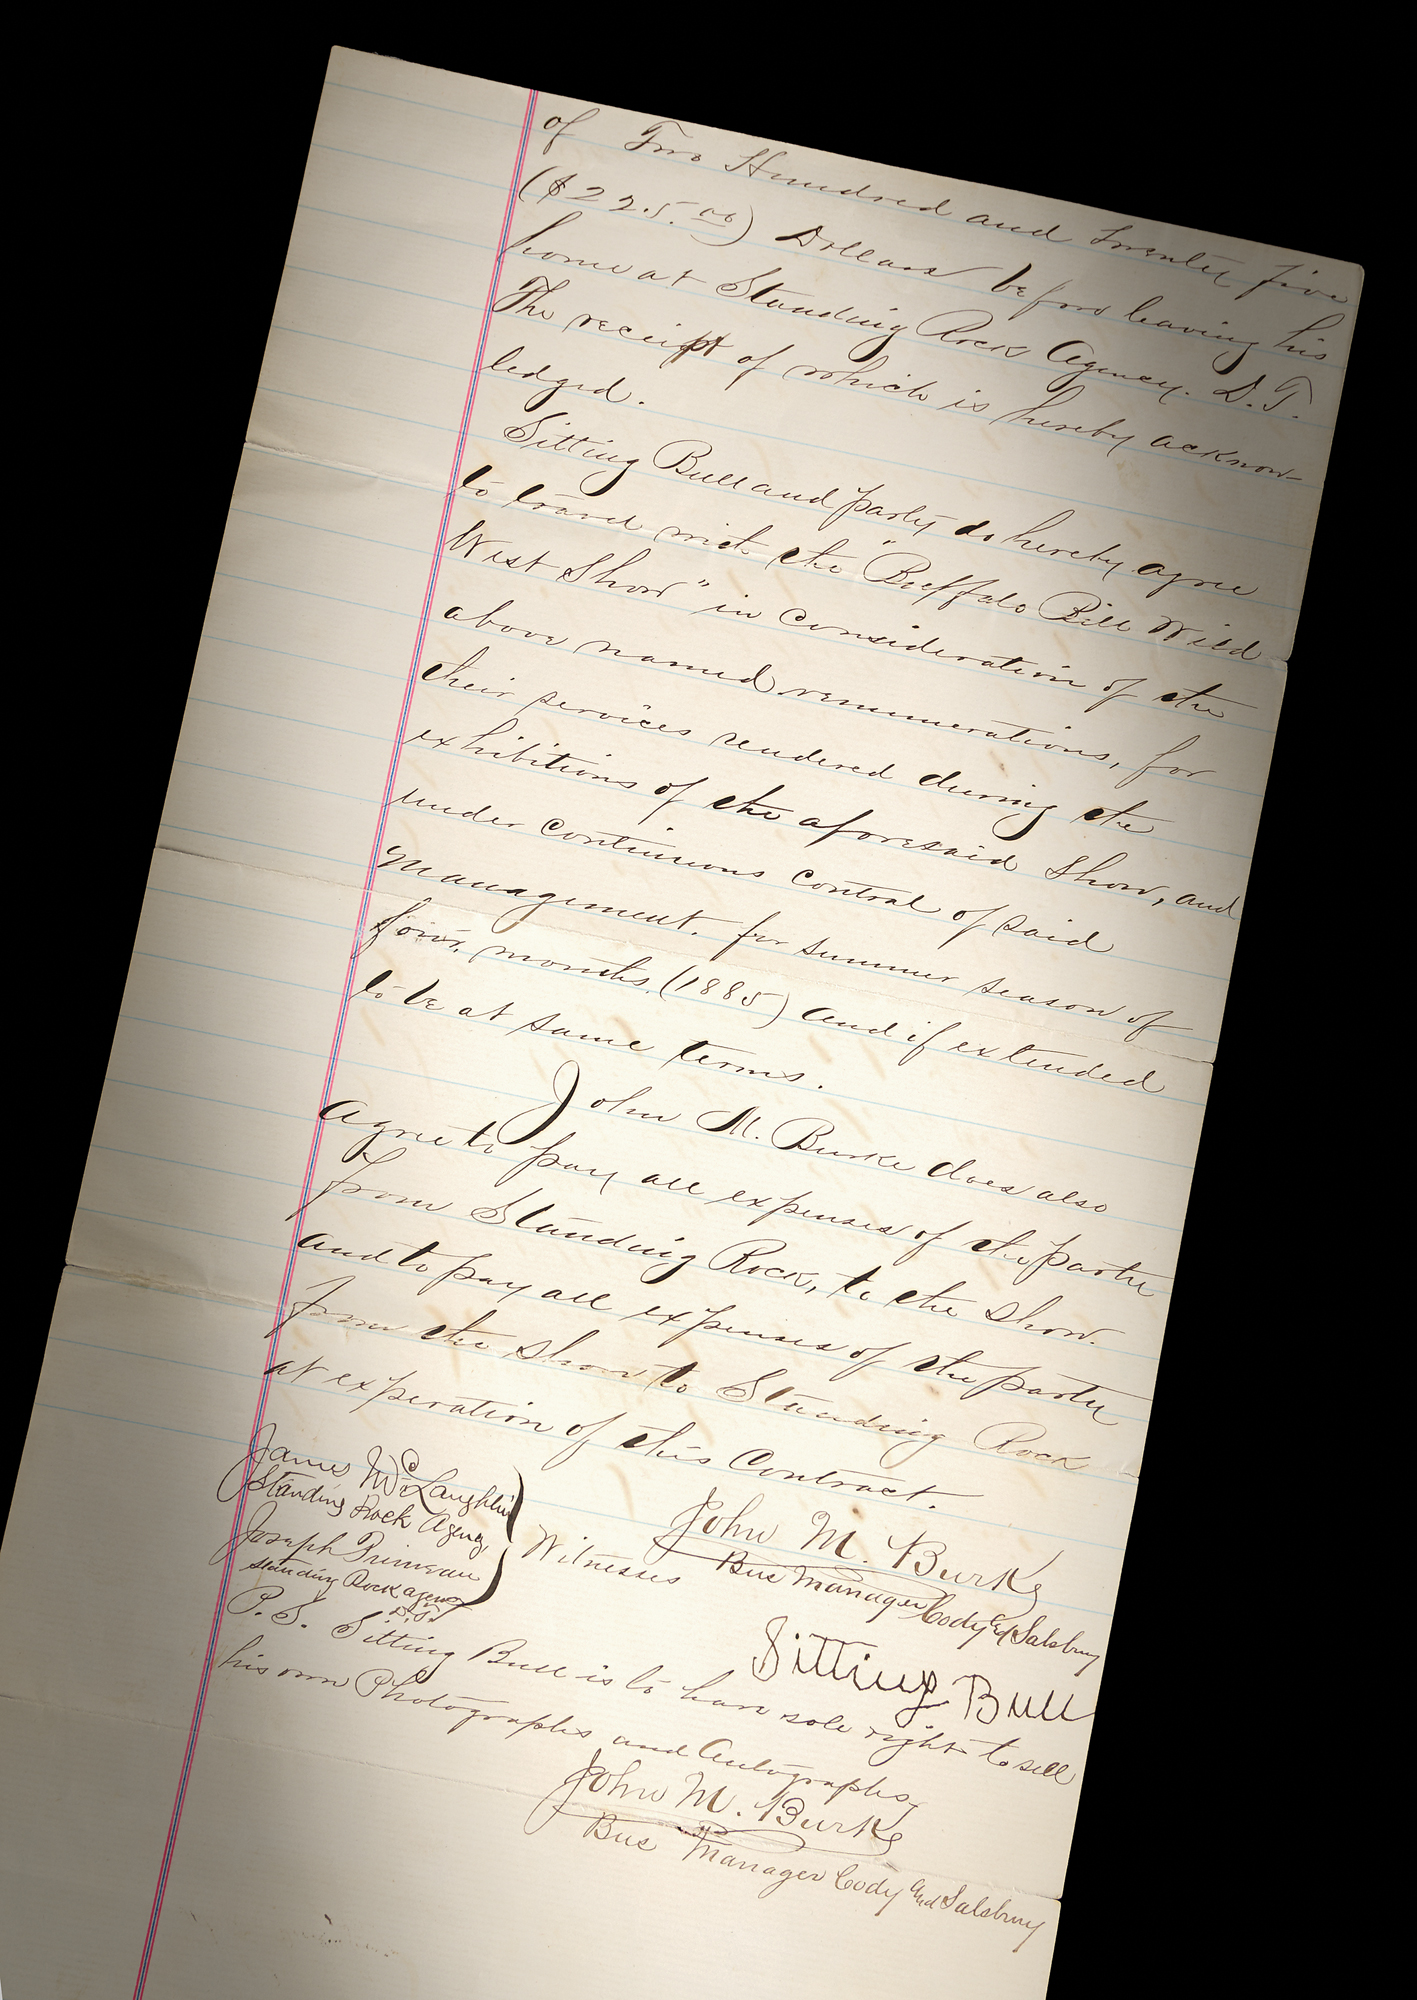 of Two Hundred and twenty five
($225.00) Dollars before leaving his
home at Standing Rock Agency. D.T.
The receipt of which is hereby acknow-
ledged.
Sitting Bull and party do hereby agree
to travel with the "Buffalo Bill Wild
West Show" in consideration of the
above named remunerations, for
their services rendered during the
exhibitions of the aforesaid Show, and
under continuous control of said
Management. for summer season of
four months (1885) and if extended
to be at same terms.
John M. Burke does also
agree to pay all expenses of the party
from Standing Rock, to the Show.
and to pay all expenses of the party
from the Show to Standing Rock
at experation of this Contract.
James McLaughlin
Standing Rock Agency
Joseph Primeau
Standing Rock agency
D.T.
Witnesses
John M. Burke
Bus Manager Cody and Salsbury
Sitting Bull
P.S. Sitting Bull is to have sole right to sell
his own Photographs and Autographs
John M. Burke
Bus Manager Cody and Salsbury